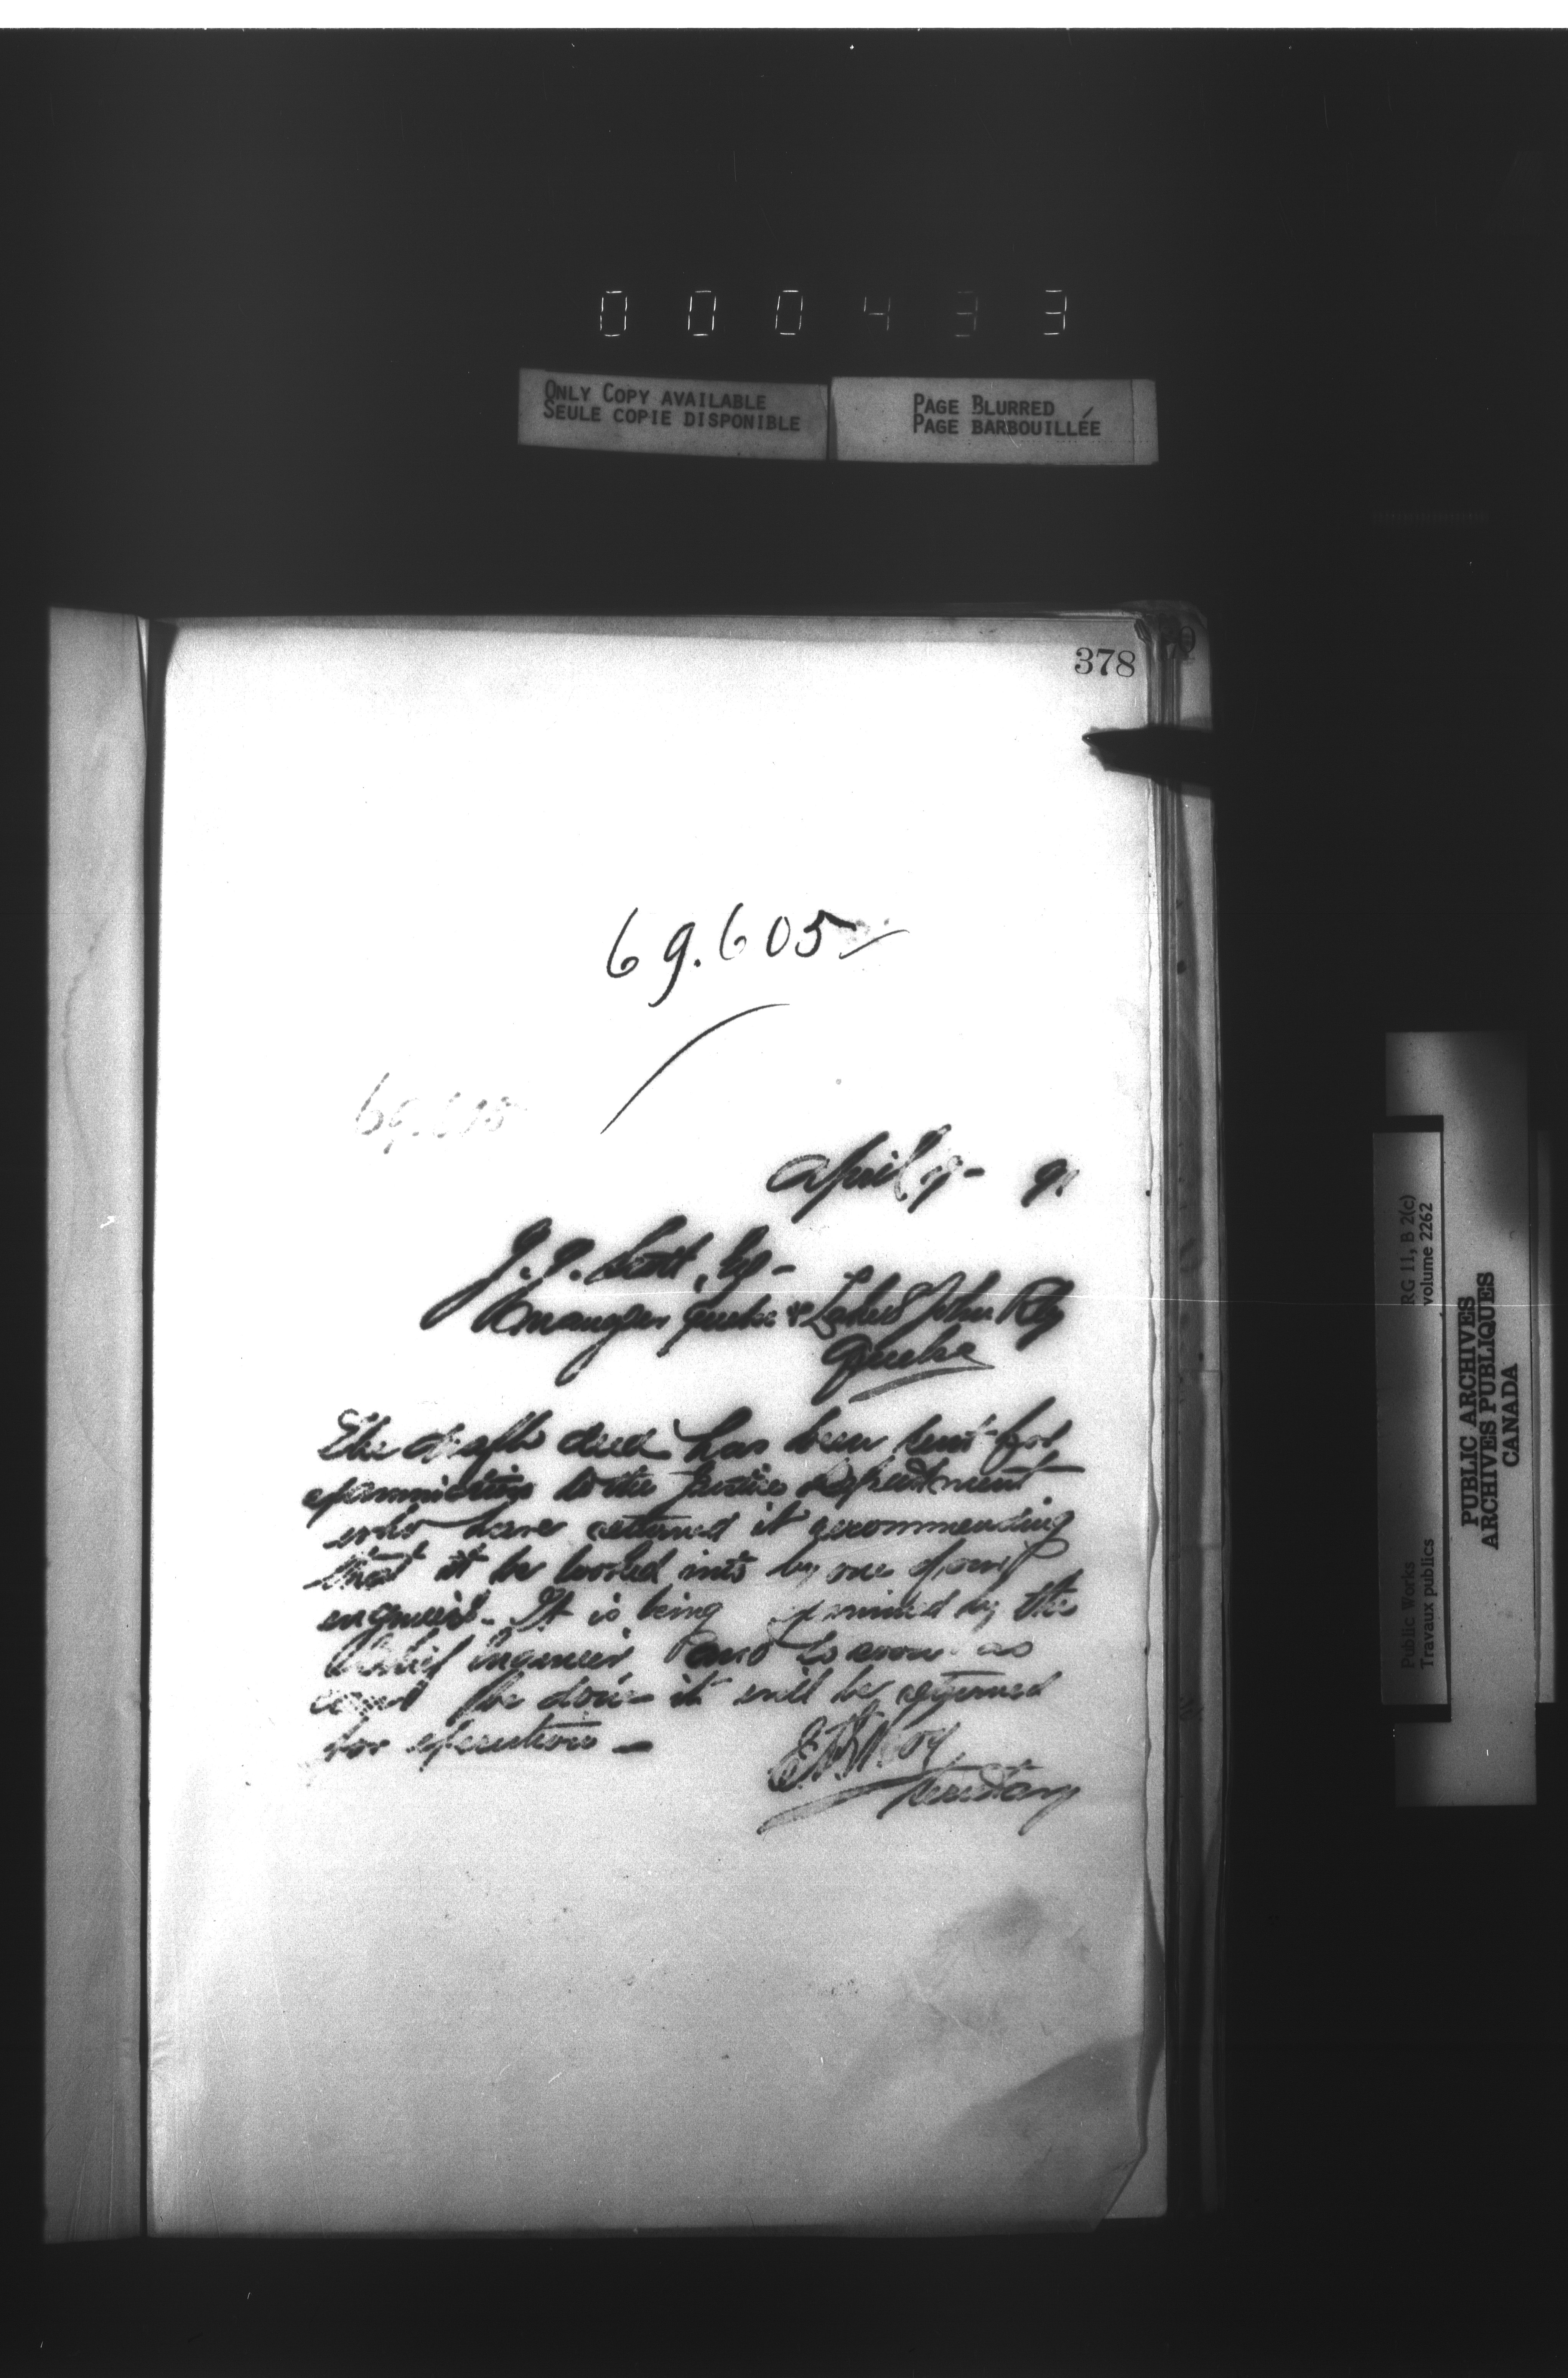 000433
ONLY COPY AVAILABLE
SEULE COPIE DISPONIBLE
PAGE BLURRED
PAGE BARBOUILLÉE
378
69.605
69.605
April 9 - 91
J. G. Scott, Esq -
Manager Quebec & Lake St John Rly
Quebec
The draft deed has been sent for
examination to the Justice Department
who have returned it recommending
that it be looked into by one of our
engineers. It is being examined by the
Chief Engineer and as soon as
can be done it will be returned
for execution —
E. F. E. Roy
Secretary
Public Works
Travaux publics
RG 11, B 2(c)
volume 2262
PUBLIC ARCHIVES
ARCHIVES PUBLIQUES
CANADA